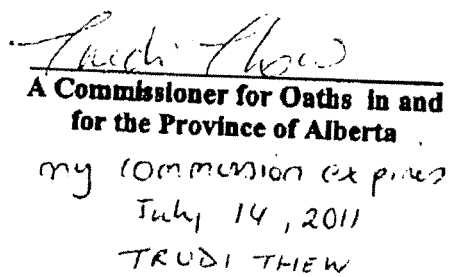 Trudi Thew
A Commissioner for Oaths in and
for the Province of Alberta
my commission expires
July 14, 2011
TRUDI THEW